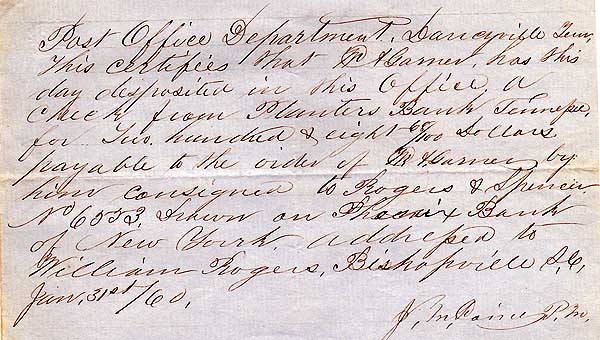 Post Office Department, Dancyville Tenn,
This certifies that P A Garner, has this
day desposited in this Office, a
Check from Planters Bank Tennessee,
for Two hundred & eight 60/100 Dollars
payable to the order of P A Garner by
him consigned to Rogers & Spencer
No 6083, drawn on Phoenix Bank
of New York addressed to
William Rogers, Bishopville S,C,
Jan, 31st/60,
P. M,